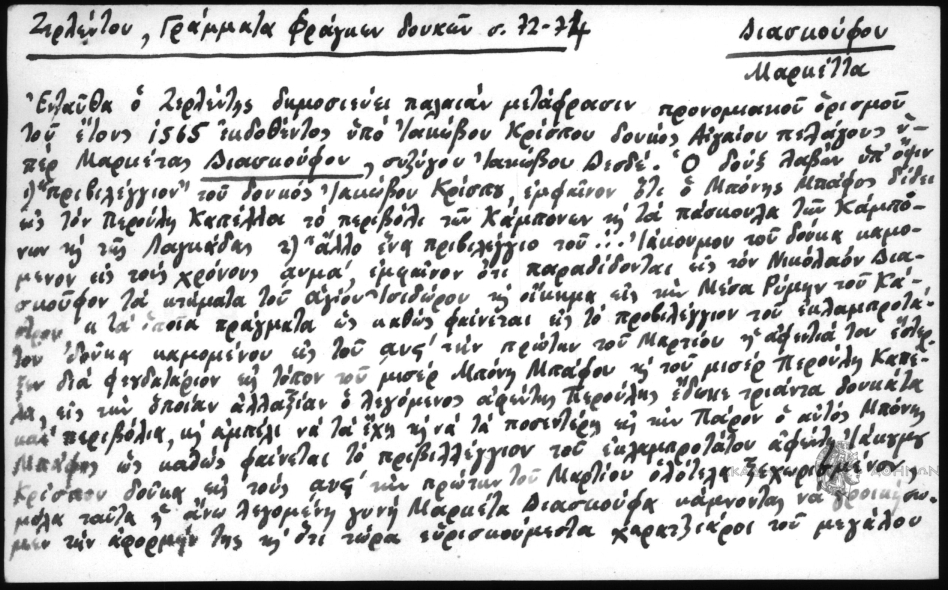 Ζερλέντου, Γράμματα Φράγκων δουκῶν σ. 72-74
Διασκούφου
Μαρκέττα
Ἐνταῦθα ὁ Ζερλέντης δημοσιεύει παλαιάν μετάφρασιν προνομιακοῦ ὁρισμοῦ
τοῦ ἔτους 1565 ἐκδοθέντος ὑπό Ἰακώβου Κρίσπου δουκός Αἰγαίου πελάγους ὑ-
πέρ Μαρκέτας Διασκούφου, συζύγου Ἰακώβου Δεσδέ. Ὁ δούξ λαβών ὑπ' ὄψιν
1) "πριβιλέγγιον" τοῦ δουκός Ἰακώβου Κρίσπου, ἐμφαῖνον ὅτι ὁ Μπόνης Μπάφος δίδει
ὡς τόν Περούλη Καπέλλοι τό περιβόλι τῶν Κάμπονων κὴ τά πάσκουλα τῶν Κάμπό-
νων κὴ τῆς Λαγκάδας 2) "ἄλλο ἕνα πριβιλέγγιο τοῦ ... Ἰάκουμου τοῦ δουκα καμο-
μενον εἰς τούς χρόνους αυμα', ἐμφαῖνον ὅτι παραδίδονται εἰς τόν Νικολαόν Δια-
σκοῦφον τά κτήματα τοῦ ἁγίου Ἰσιδώρου κὴ οἴκημα εἰς τὴν Μέσα Ρύμην τοῦ Κά-
στρου κ τά ὁποῖα πράγματα ὡς καθώς φαίνεται εἰς τό προβιλέγγιον τοῦ ἐκλαμπροτά-
του δοῦκα καμομένου εἰς τοῦ αυϛ' τὴν πρώτην τοῦ Μαρτίου ἡ ἀφεντιά του ἔστερ-
ξεν διά φευδατάριον εἰς τόπον τοῦ μισέρ Μπόνη Μπάφου κὴ τοῦ μισέρ Περούλη Καπε-
λλο, εἰς τὴν ὁποίαν ἀλλαξίαν ὁ λεγόμενος ἀφέντης Περούλης ἔδωκε τριάντα δουκάτα
καὶ περιβόλια, κὴ ἀμπέλι νά τά ἔχη κὴ νά τά ποσεντέρη εἰς τὴν Πάρον ὁ αὐτός Μπόνης
Μπάφος ὡς καθώς φαίνεται τό πριβιλλέγγιον τοῦ ἐκλαμπροτάτου ἀφέντη Ἰάκυμου
Κρίσπου δοῦκα εἰς τούς αυϛ' τὴν πρώτην τοῦ Μαρτίου ὁλότελα ξεχωρισμένον,
μόλα ταῦτα ἡ ἄνω λεγομένη γυνή Μαρκέτα Διασκούφα κάμνοντας νά γροικήσω-
μεν τὴν ἀφορμήν της κὴ ὅτι τώρα εὑρισκούμεστα χαρατζιάροι τοῦ μεγάλου